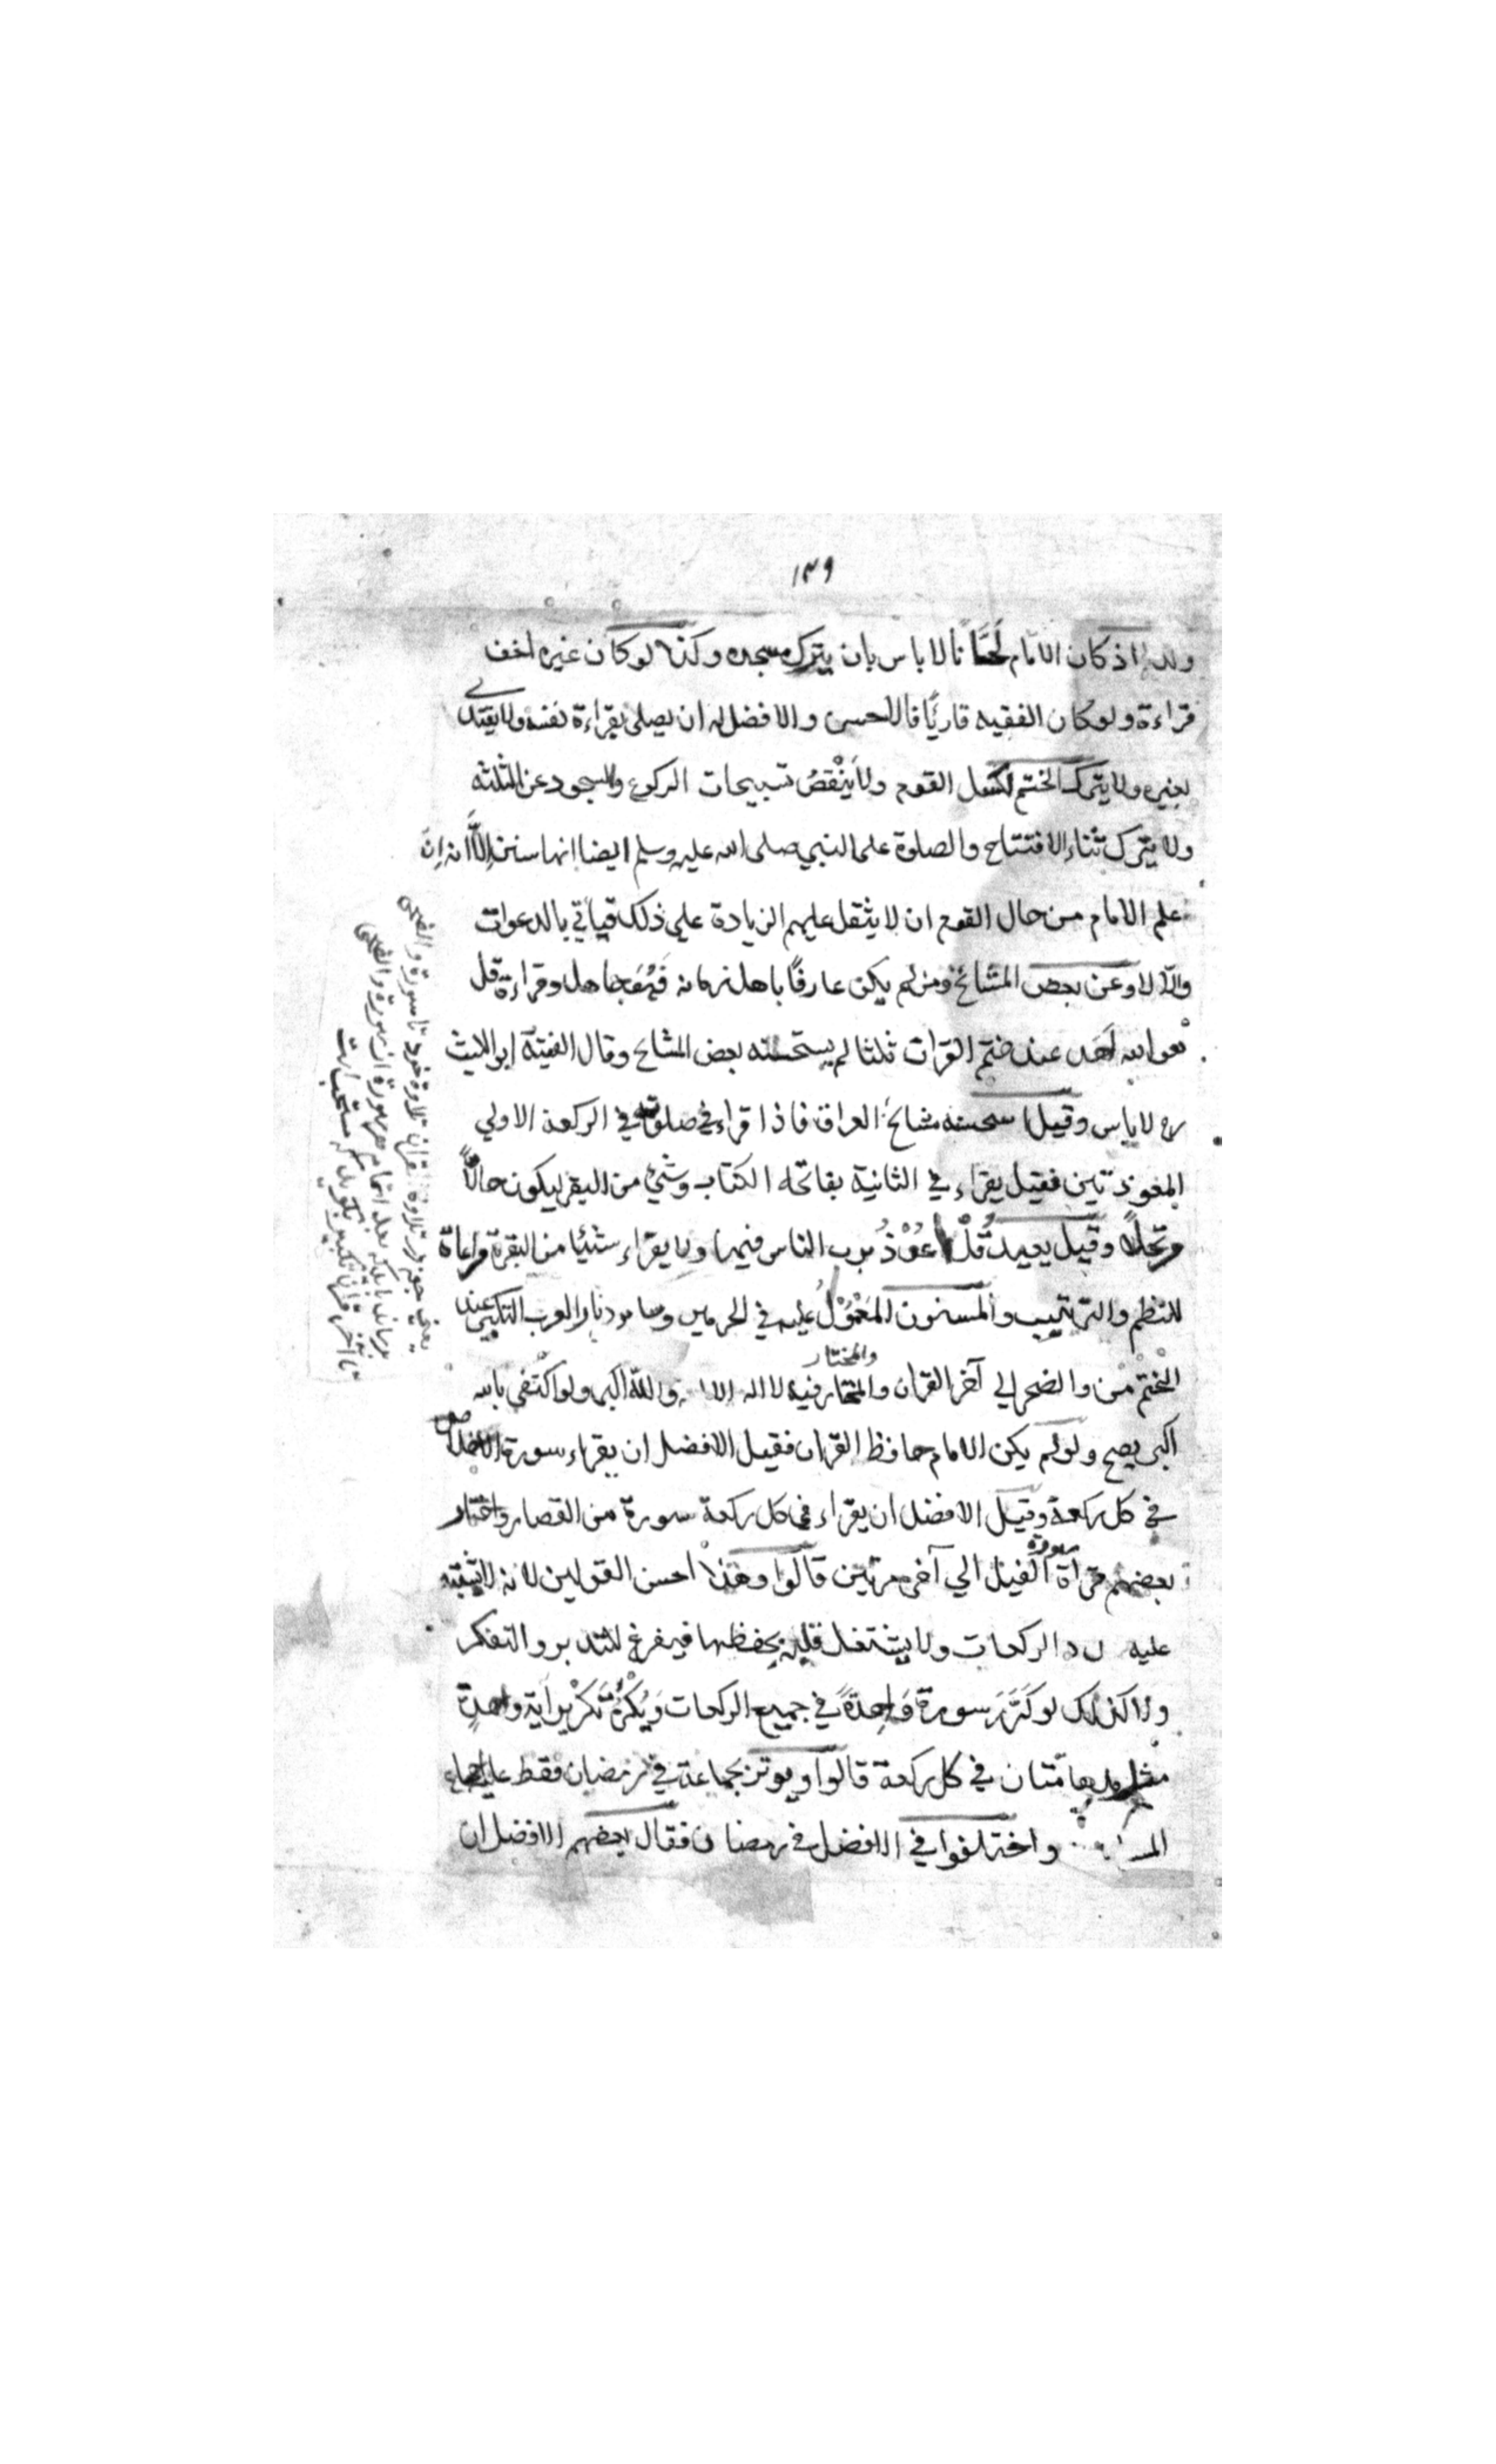 ١٣٩
اذ كان الامام لحَّانا لا باس بان يترك مسجده وكذا لو كان غيره اخف
قراءة ولو كان الفقيه قاريًا فالاحسن والافضل له ان يصلى بقراءة نفسه ولا يقتدى
بغيره ولا يترك الختم لكسل القوم ولا يَنْقُصُ تسبيحات الركوع والسجود عن الثلثه
ولا يترك ثناء الافتتاح والصلوة على النبي صلى الله عليه وسلم ايضا انها سنن اِلَّا انه اِن
علم الامام من حال القوم ان لا يثقل عليهم الزيادة علي ذلك فياتي بالدعوات
والّا لا وعن بعض المشائخ ومن لم يكن عارفًا باهل زمانه فهو جاهل وقراءة قل
هو الله احد عند ختم القران ثلثا لم يستحسنه بعض المشائخ وقال الفقيه ابو الليث
ره لا باس وقيل استحسنه مشائخ العراق فاذا قراء في صلوته في الركعة الاولي
المعوذتين فقيل يقراء في الثانية بفاتحة الكتاب وشئ من البقر ليكون حالًّا
مرتحلًا وقيل يعيد قُلْ اَعُوْذُ برب الناس فيها ولا يقراء شيئا من البقرة مراعاة
للنظم والترتيب والمسنون المَعْمُوْلُ عليه في الحرمين وسائر ديار العرب التكبير عند
الختم من والضحى الي آخر القران والمختار فيه لا اله الا الله والله اكبر ولو اكتفى بالله
والمختار
اكبر يصح ولو لم يكن الامام حافظ القران فقيل الافضل ان يقراء سورة الاخلاص
في كل ركعة وقيل الافضل ان يقراء في كل ركعة سورة من القصار واختار
بعضهم قرأة سورة الفيل الي آخره مرتين قالوا وهذا احسن القولين لانه لا يشتبه
عليه الركعات ولا يشتغل قلبه بحفظها فيفرغ للتدبر والتفكر
ولا كذلك لو كَرَّرَ سورة واحِدةً في جميع الركعات وَيُكْرَهُ تكرير آية واحدةٍ
مثل مدهامّتان في كل ركعة قالوا ويوتر بجماعة في رمضان فقط عليه اجماع
واختلفوا في الافضل في رمضان فقال بعضهم الافضل ان
يعنى چون در تلاوة قران تلاوة خود تا سورة والضحى
برساند بايد كه بعد اتمام هر سورة از سورة والضحى
تا آخر قران تكبير بگويد كه مستحب است